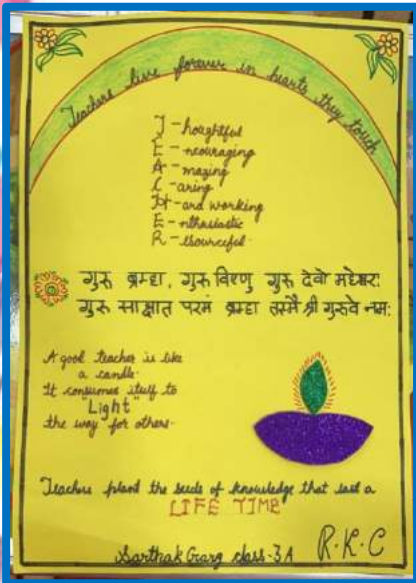 Teachers live forever in hearts they touch
T - houghtful
E - ncouraging
A - mazing
C - aring
H - ard working
E - nthusiastic
R - esourceful
गुरु ब्रम्हा, गुरु विष्णु गुरु देवो महेश्वरः
गुरु साक्षात परमं ब्रम्हा तस्मै श्री गुरुवे नमः
A good teacher is like
a candle.
It consumes itself to
"Light"
the way for others.
Teachers plant the seeds of knowledge that last a
LIFE TIME
Sarthak Garg class-3A
R.K.C